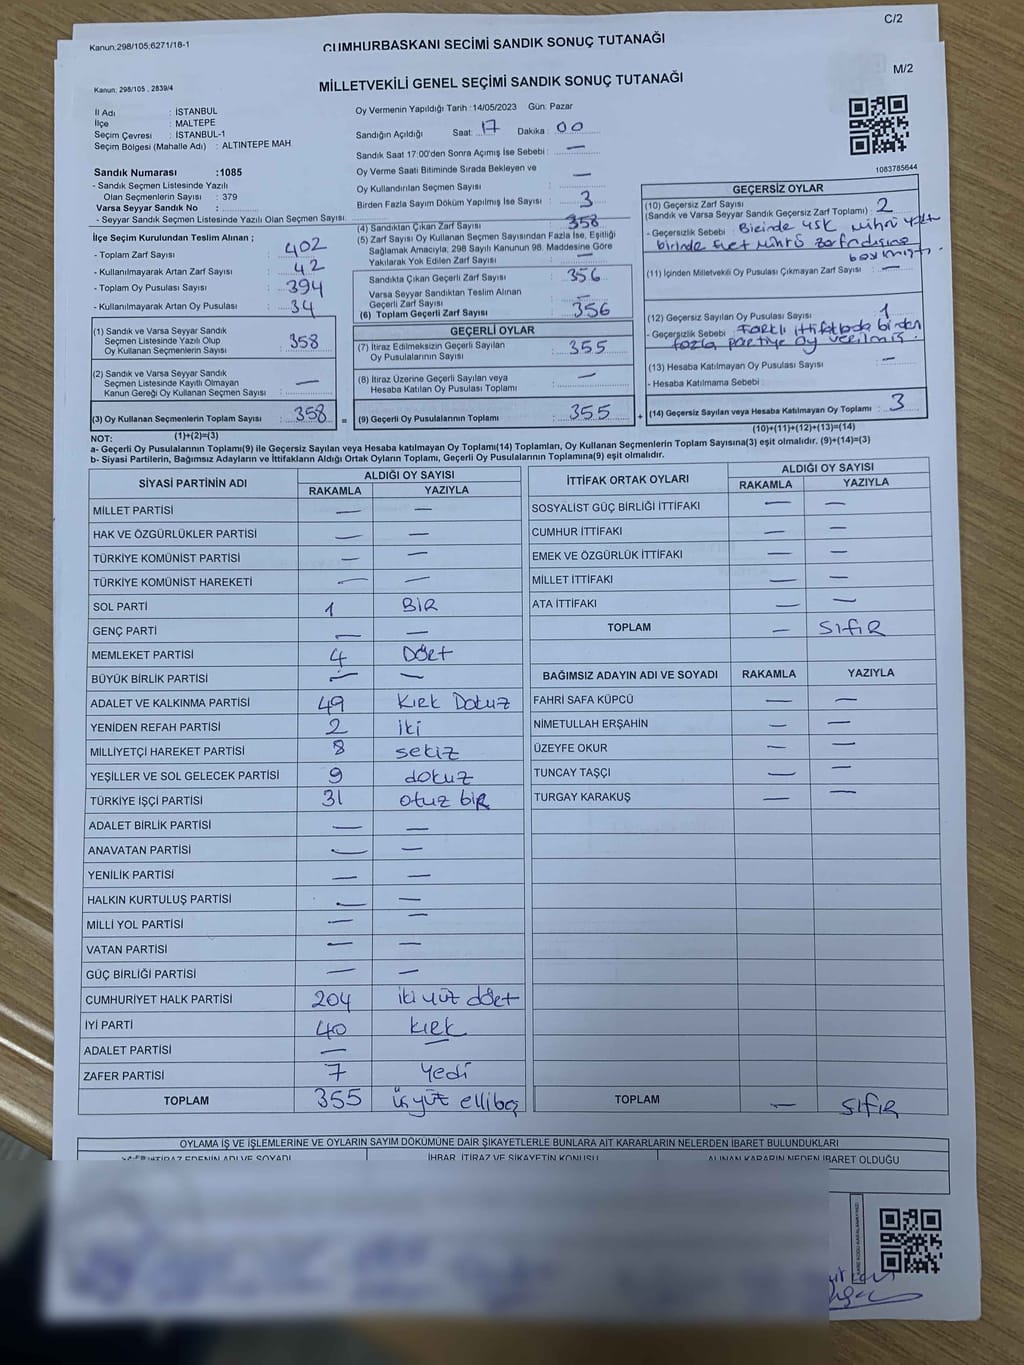 C/2
Kanun.298/105;6271/18-1
CUMHURBAŞKANI SEÇİMİ SANDIK SONUÇ TUTANAĞI
M/2
Kanun: 298/105 , 2839/4
MİLLETVEKİLİ GENEL SEÇİMİ SANDIK SONUÇ TUTANAĞI
İl Adı : İSTANBUL
İlçe : MALTEPE
Seçim Çevresi : İSTANBUL-1
Seçim Bölgesi (Mahalle Adı) : ALTINTEPE MAH
Sandık Numarası :1085
- Sandık Seçmen Listesinde Yazılı
Olan Seçmenlerin Sayısı : 379
Varsa Seyyar Sandık No :
- Seyyar Sandık Seçmen Listesinde Yazılı Olan Seçmen Sayısı:
Oy Vermenin Yapıldığı Tarih :14/05/2023 Gün: Pazar
Sandığın Açıldığı Saat: 17 Dakika : 00
Sandık Saat 17:00'den Sonra Açımış İse Sebebi : —
Oy Verme Saati Bitiminde Sırada Bekleyen ve
Oy Kullandırılan Seçmen Sayısı —
Birden Fazla Sayım Döküm Yapılmış İse Sayısı : 3
1083785644
İlçe Seçim Kurulundan Teslim Alınan ;
- Toplam Zarf Sayısı : 402
- Kullanılmayarak Artan Zarf Sayısı : 42
- Toplam Oy Pusulası Sayısı : 394
- Kullanılmayarak Artan Oy Pusulası : 34
(1) Sandık ve Varsa Seyyar Sandık
Seçmen Listesinde Yazılı Olup
Oy Kullanan Seçmenlerin Sayısı : 358
(2) Sandık ve Varsa Seyyar Sandık
Seçmen Listesinde Kayıtlı Olmayan
Kanun Gereği Oy Kullanan Seçmen Sayısı : —
(3) Oy Kullanan Seçmenlerin Toplam Sayısı : 358 =
(4) Sandıktan Çıkan Zarf Sayısı : 358
(5) Zarf Sayısı Oy Kullanan Seçmen Sayısından Fazla İse, Eşitliği
Sağlamak Amacıyla, 298 Sayılı Kanunun 98. Maddesine Göre
Yakılarak Yok Edilen Zarf Sayısı : —
Sandıkta Çıkan Geçerli Zarf Sayısı : 356
Varsa Seyyar Sandıktan Teslim Alınan
Geçerli Zarf Sayısı : —
(6) Toplam Geçerli Zarf Sayısı : 356
GEÇERLİ OYLAR
(7) İtiraz Edilmeksizin Geçerli Sayılan
Oy Pusulalarının Sayısı : 355
(8) İtiraz Üzerine Geçerli Sayılan veya
Hesaba Katılan Oy Pusulası Toplamı : —
(9) Geçerli Oy Pusulalarının Toplamı : 355 +
GEÇERSİZ OYLAR
(10) Geçersiz Zarf Sayısı
(Sandık ve Varsa Seyyar Sandık Geçersiz Zarf Toplamı) : 2
- Geçersizlik Sebebi : Birinde YSK mührü yok
birinde Evet mührü zarfın dışına
basılmıştı.
(11) İçinden Milletvekili Oy Pusulası Çıkmayan Zarf Sayısı : —
(12) Geçersiz Sayılan Oy Pusulası Sayısı : 1
- Geçersizlik Sebebi : Farklı ittifakda birden
fazla partiye oy verilmiş.
(13) Hesaba Katılmayan Oy Pusulası Sayısı : —
- Hesaba Katılmama Sebebi :
(14) Geçersiz Sayılan veya Hesaba Katılmayan Oy Toplamı : 3
(10)+(11)+(12)+(13)=(14)
NOT: (1)+(2)=(3)
a- Geçerli Oy Pusulalarının Toplamı(9) ile Geçersiz Sayılan veya Hesaba katılmayan Oy Toplamı(14) Toplamları, Oy Kullanan Seçmenlerin Toplam Sayısına(3) eşit olmalıdır. (9)+(14)=(3)
b- Siyasi Partilerin, Bağımsız Adayların ve İttifakların Aldığı Ortak Oyların Toplamı, Geçerli Oy Pusulalarının Toplamına(9) eşit olmalıdır.
SİYASİ PARTİNİN ADI ALDIĞI OY SAYISI
RAKAMLA YAZIYLA
MİLLET PARTİSİ — —
HAK VE ÖZGÜRLÜKLER PARTİSİ — —
TÜRKİYE KOMÜNİST PARTİSİ — —
TÜRKİYE KOMÜNİST HAREKETİ — —
SOL PARTİ 1 BİR
GENÇ PARTİ — —
MEMLEKET PARTİSİ 4 Dört
BÜYÜK BİRLİK PARTİSİ — —
ADALET VE KALKINMA PARTİSİ 49 Kırk Dokuz
YENİDEN REFAH PARTİSİ 2 iki
MİLLİYETÇİ HAREKET PARTİSİ 8 sekiz
YEŞİLLER VE SOL GELECEK PARTİSİ 9 dokuz
TÜRKİYE İŞÇİ PARTİSİ 31 otuz bir
ADALET BİRLİK PARTİSİ — —
ANAVATAN PARTİSİ — —
YENİLİK PARTİSİ — —
HALKIN KURTULUŞ PARTİSİ — —
MİLLİ YOL PARTİSİ — —
VATAN PARTİSİ — —
GÜÇ BİRLİĞİ PARTİSİ — —
CUMHURİYET HALK PARTİSİ 204 iki yüz dört
İYİ PARTİ 40 kırk
ADALET PARTİSİ — —
ZAFER PARTİSİ 7 Yedi
TOPLAM 355 üç yüz ellibeş
İTTİFAK ORTAK OYLARI ALDIĞI OY SAYISI
RAKAMLA YAZIYLA
SOSYALİST GÜÇ BİRLİĞİ İTTİFAKI — —
CUMHUR İTTİFAKI — —
EMEK VE ÖZGÜRLÜK İTTİFAKI — —
MİLLET İTTİFAKI — —
ATA İTTİFAKI — —
TOPLAM — SıfıR
BAĞIMSIZ ADAYIN ADI VE SOYADI RAKAMLA YAZIYLA
FAHRİ SAFA KÜPCÜ — —
NİMETULLAH ERŞAHİN — —
ÜZEYFE OKUR — —
TUNCAY TAŞÇI — —
TURGAY KARAKUŞ — —
TOPLAM — SıfıR
OYLAMA İŞ VE İŞLEMLERİNE VE OYLARIN SAYIM DÖKÜMÜNE DAİR ŞİKAYETLERLE BUNLARA AİT KARARLARIN NELERDEN İBARET BULUNDUKLARI
İTİRAZ EDENİN ADI VE SOYADI İHBAR, İTİRAZ VE ŞİKAYETİN KONUSU ALINAN KARARIN NEDEN İBARET OLDUĞU